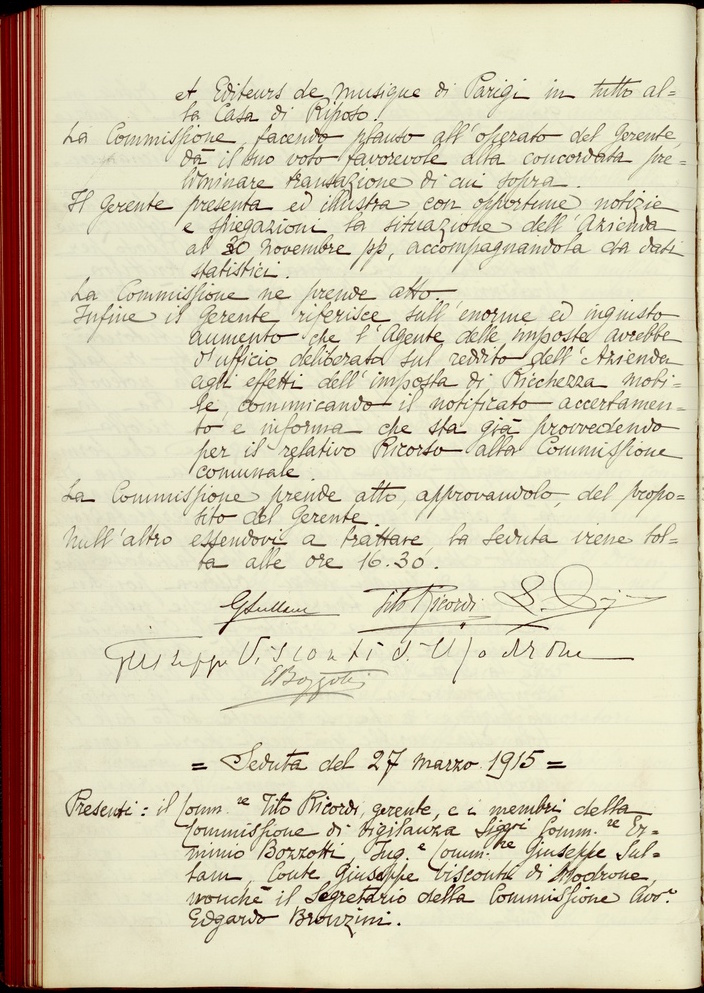 et Editeurs de musique di Parigi in tutto al=
la Casa di Riposo.
La Commissione facendo plauso all'operato del Gerente,
dà il suo voto favorevole alla concordata pre=
liminare transazione di cui sopra.
Il Gerente presenta ed illustra con opportune notizie
e spiegazioni la situazione dell'Azienda
al 30 Novembre pp, accompagnandola da dati
statistici.
La Commissione ne prende atto.
Infine il Gerente riferisce sull'enorme ed ingiusto
aumento che l'Agente delle imposte avrebbe
d'ufficio deliberato sul reddito dell'Azienda
agli effetti dell'imposta di Ricchezza mobi=
le, comunicando il notificato accertamen=
to e informa che sta già provvedendo
per il relativo Ricorso alla Commissione
comunale.
La Commissione prende atto, approvandolo, del propo=
sito del Gerente.
Null'altro essendovi a trattare la seduta viene tol=
ta alle ore 16.30.
GSullam Tito Ricordi
Giuseppe Visconti di Modrone
EBozzotti
= Seduta del 27 marzo 1915 =
Presenti: il Comm.re Tito Ricordi, gerente, e i membri della
Commissione di Vigilanza Siggri Comm.re Er=
minio Bozzotti, Ing.e Comm.re Giuseppe Sul=
lam, Conte Giuseppe Visconti di Modrone,
nonchè il Segretario della Commissione Avv.o
Edgardo Bronzini.